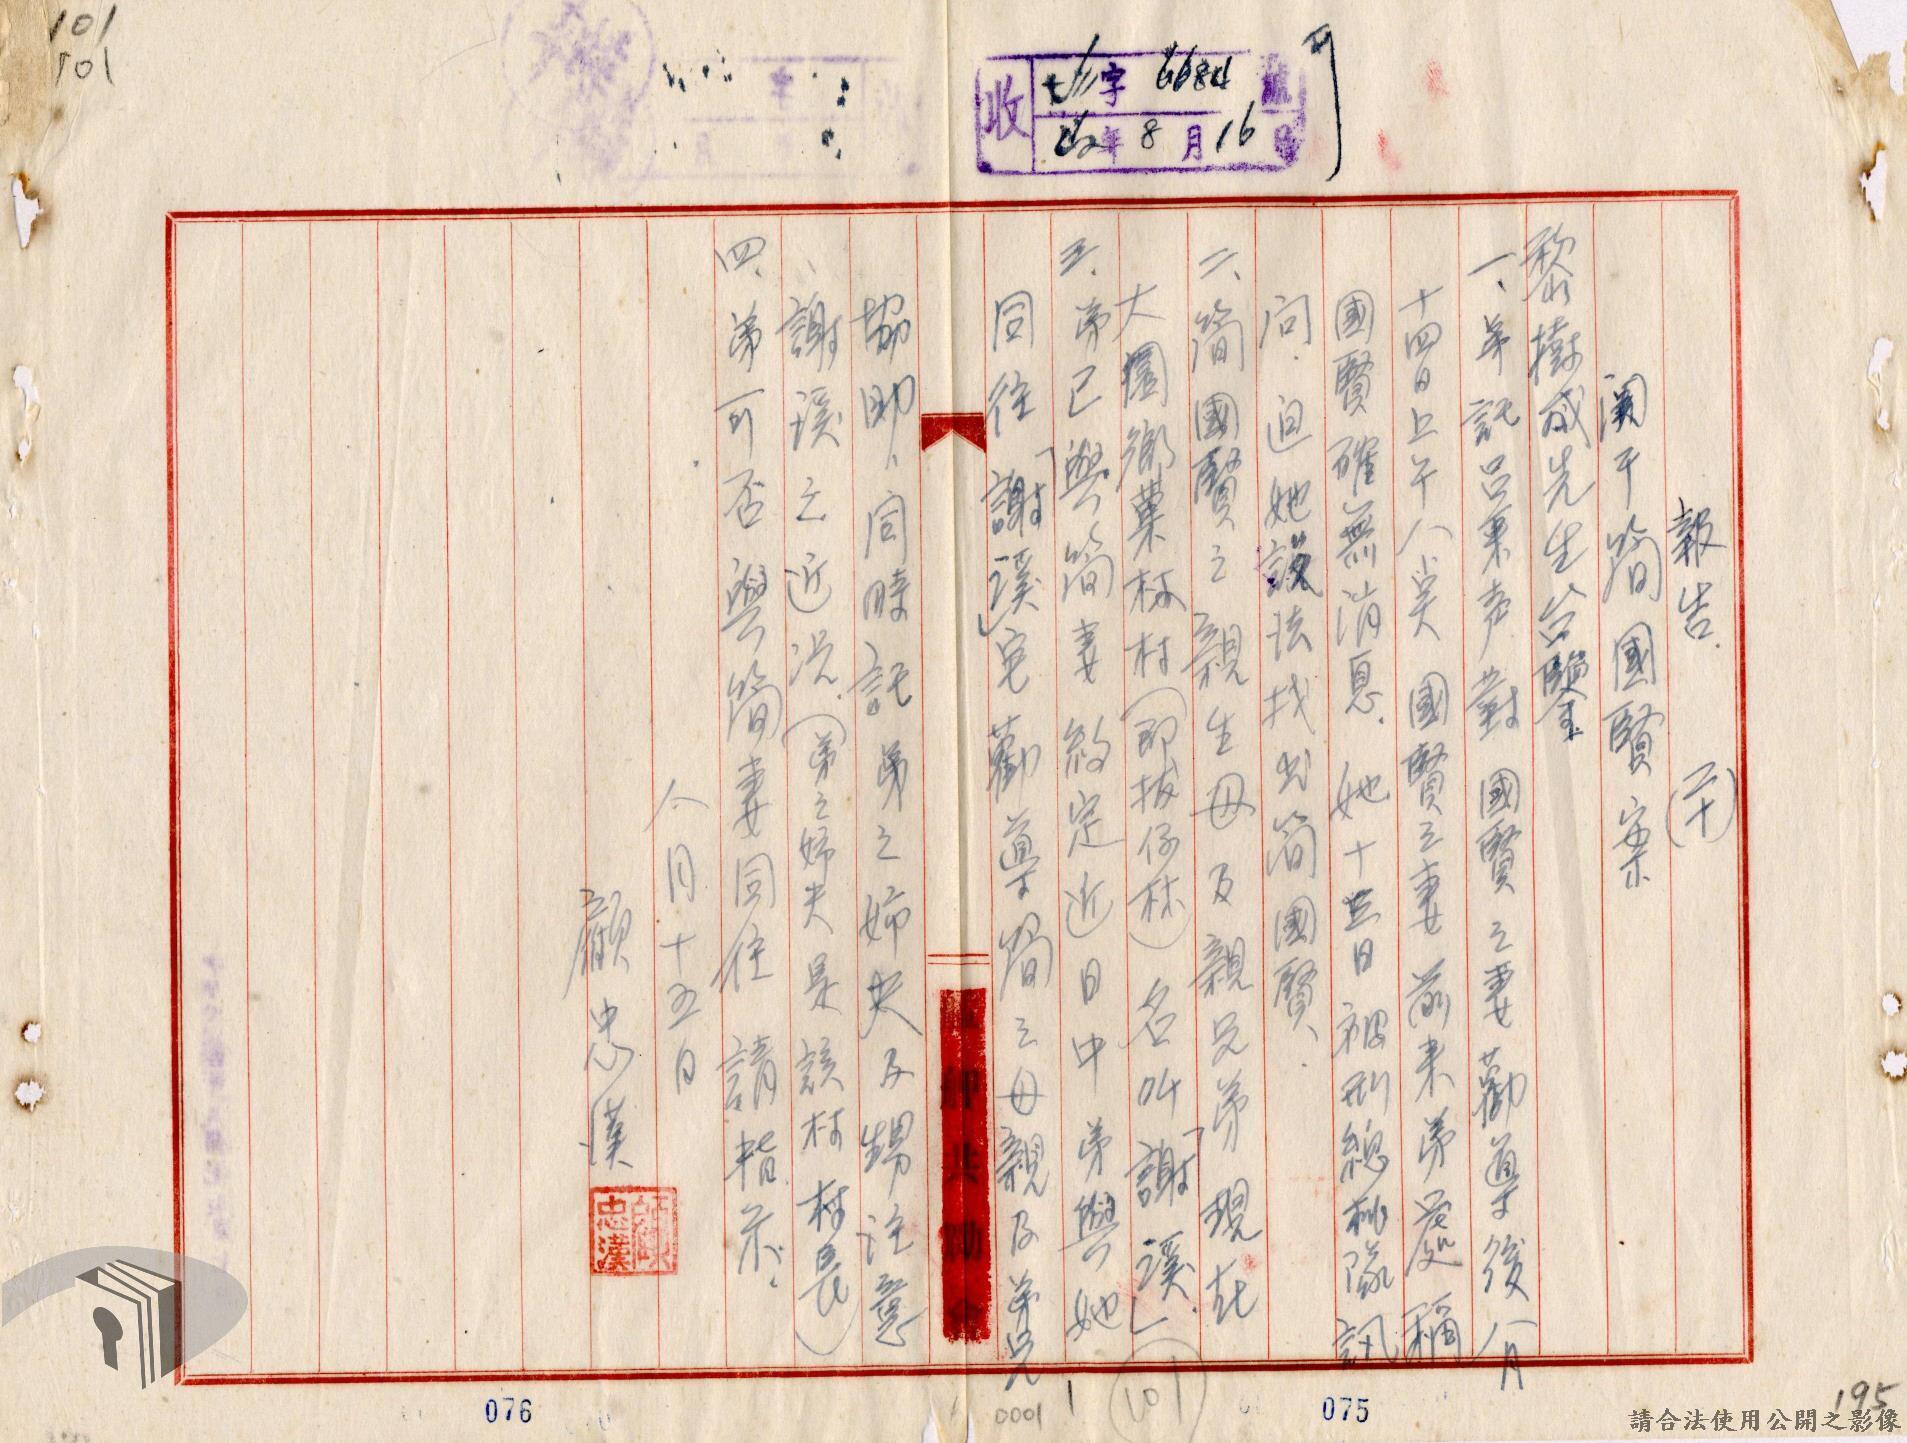 101
101
收 字 6684 號
年 8 月 16 日
可
報告. (二十)
関于簡國賢案
黎樹成先生台鑒
一、弟託呂東声對國賢之妻勸導後八月
十四日上午八点國賢之妻前来弟處稱
國賢確無消息.她十三日被刑總桃隊訊
问.迫她設法找出简國賢.
二、簡國賢之親生母及親兄弟現在
大園鄉菓林村(即拔仔林)名叫「謝溪」.
三.弟已與簡妻約定近日中弟與她
同往「謝溪」宅勸導簡之母親及弟兄
協助、同時託弟之姉夫及甥注意
謝溪之近況.(弟之姉夫是該村村長)
四、弟可否與簡妻同往請指示.
八月十五日
顏忠漢
顏忠漢
076
0001
101
075
195
請合法使用公開之影像